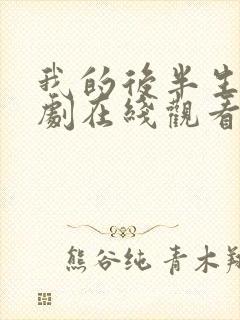 我的後半生
劇在綫觀看
熊谷纯 青木翔